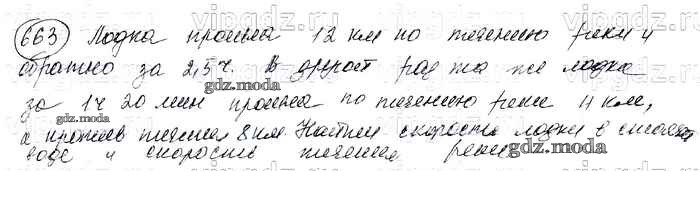 663 Лодка прошла 12 км по течению реки и
обратно за 2,5 ч. В другой раз та же лодка
за 1 ч 20 мин прошла по течению реки 4 км,
а против течения 8 км. Найти скорость лодки в стоячей
воде и скорость течения реки.
gdz.moda
gdz.moda
gdz.moda
gdz.moda
vipgdz.ru
vipgdz.ru